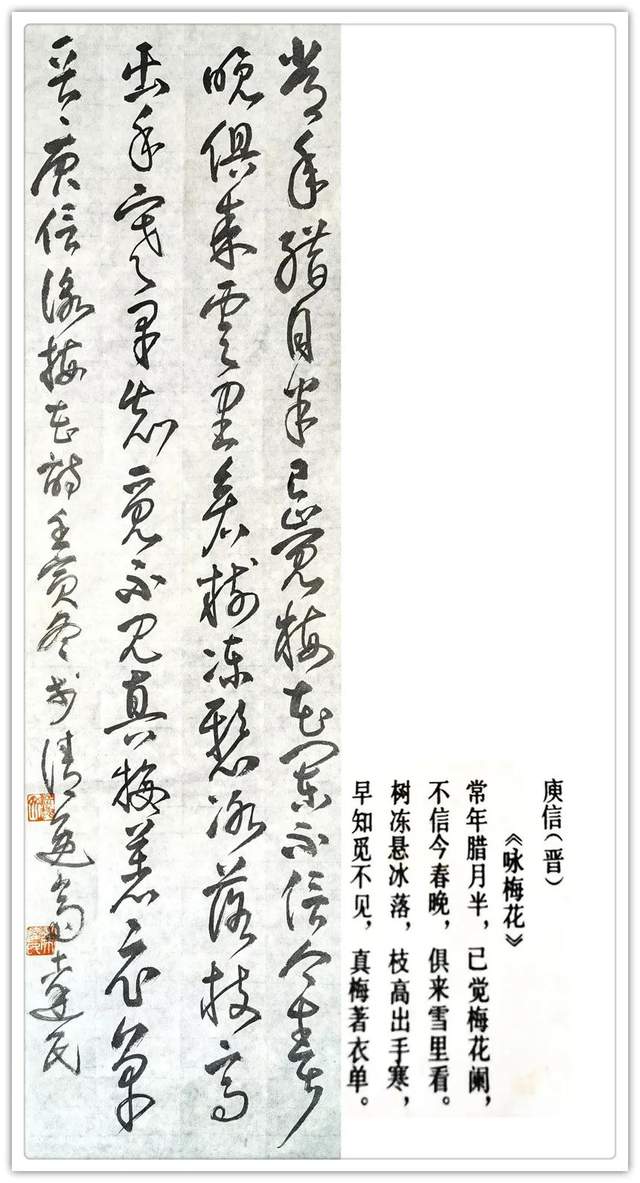 庾信（晋）
《咏梅花》
常年腊月半，已觉梅花阑，
不信今春晚，俱来雪里看。
树冻悬冰落，枝高出手寒，
早知觅不见，真梅著衣单。
常年腊月半已覺梅花闌不信今春
晚俱来雪里看樹凍懸冰落枝高
出手寒早知覓不見真梅著衣單
晋庾信詠梅花詩壬寅冬书清達民